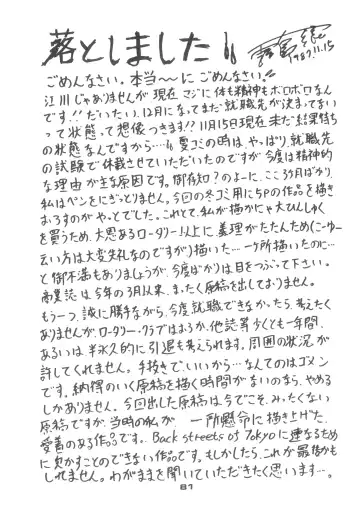 落としました
1987.11.15
ごめんなさい。本当〜〜にごめんなさい。
江川じゃありませんが現在マジに体も精神もボロボロなん
です!!だいたい、12月になってまだ就職先が決まってない
って状態って想像つきます!?11月15日現在未だ結果待ち
の状態なんですから…。夏コミの時は、やっぱり、就職先
の試験で休載させていただいたのですが今度は精神的
な理由が主な原因です。御存知?のように、ここ3ヶ月ばかり、
私はペンをにぎっとりません。今回の冬コミ用に5Pの作品を描き
おろすのがやっとでした。これとて、私が描かにゃ大ひんしゅく
を買うため、大恩あるロータリー以上に義理がたたんため(こーゆー
云い方は大変失礼なのですが)描いた…一ヶ所描いたのに…
と御不満もありましょうが、今度ばかりは目をつぶって下さい。
商業誌は今年の3月以来、まったく原稿を出しておりません。
もう一つ、誠に勝手ながら、今度、就職できなかったら、考えたく
ありませんが、ロータリー・クラブではおろか、他誌等少くとも一年間、
あるいは半永久的に引退も考えられます。周囲の状況が
許してくれません。手抜きでいいから…なんてのはゴメン
です。納得のいく原稿を描く時間がないのなら、やめる
しかありません。今回出した原稿は今でこそ、みったくない
原稿ですが、当時の私が、一所懸命に描き上げた、
愛着のある作品です。Back streets of Tokyoに連なるため
に欠かすことのできない作品です。もしかしたら、これが最後かも
しれません。わがままを聞いていただきたく思います…。
81